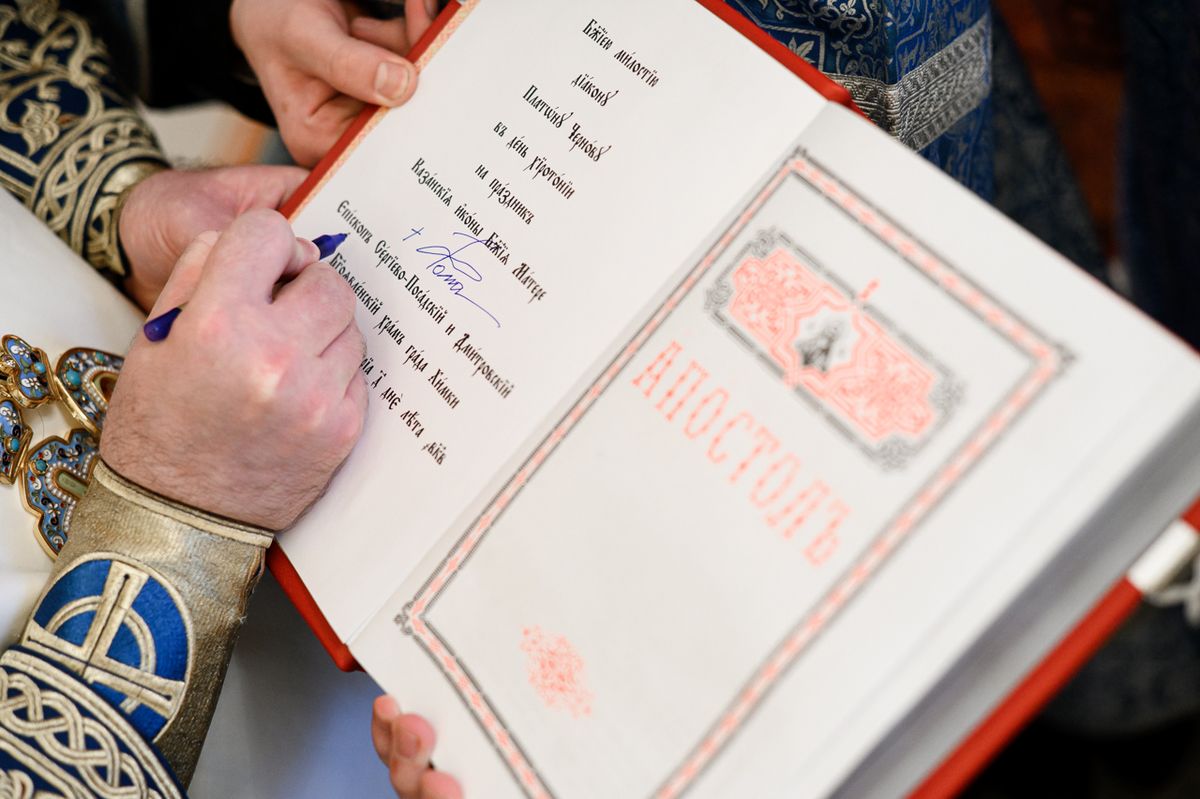 Бжїею милостїю
дїакону
Платѡну Чернову
въ день хїротонїи
на праздникъ
Казанскїѧ їконы Бжїѧ Матере
Епїскопъ Сергїево-Посадскїй и Дмитровскїй
Бгоѧвленскїй храмъ града Химки
дне лѣта
АПОСТОЛЪ